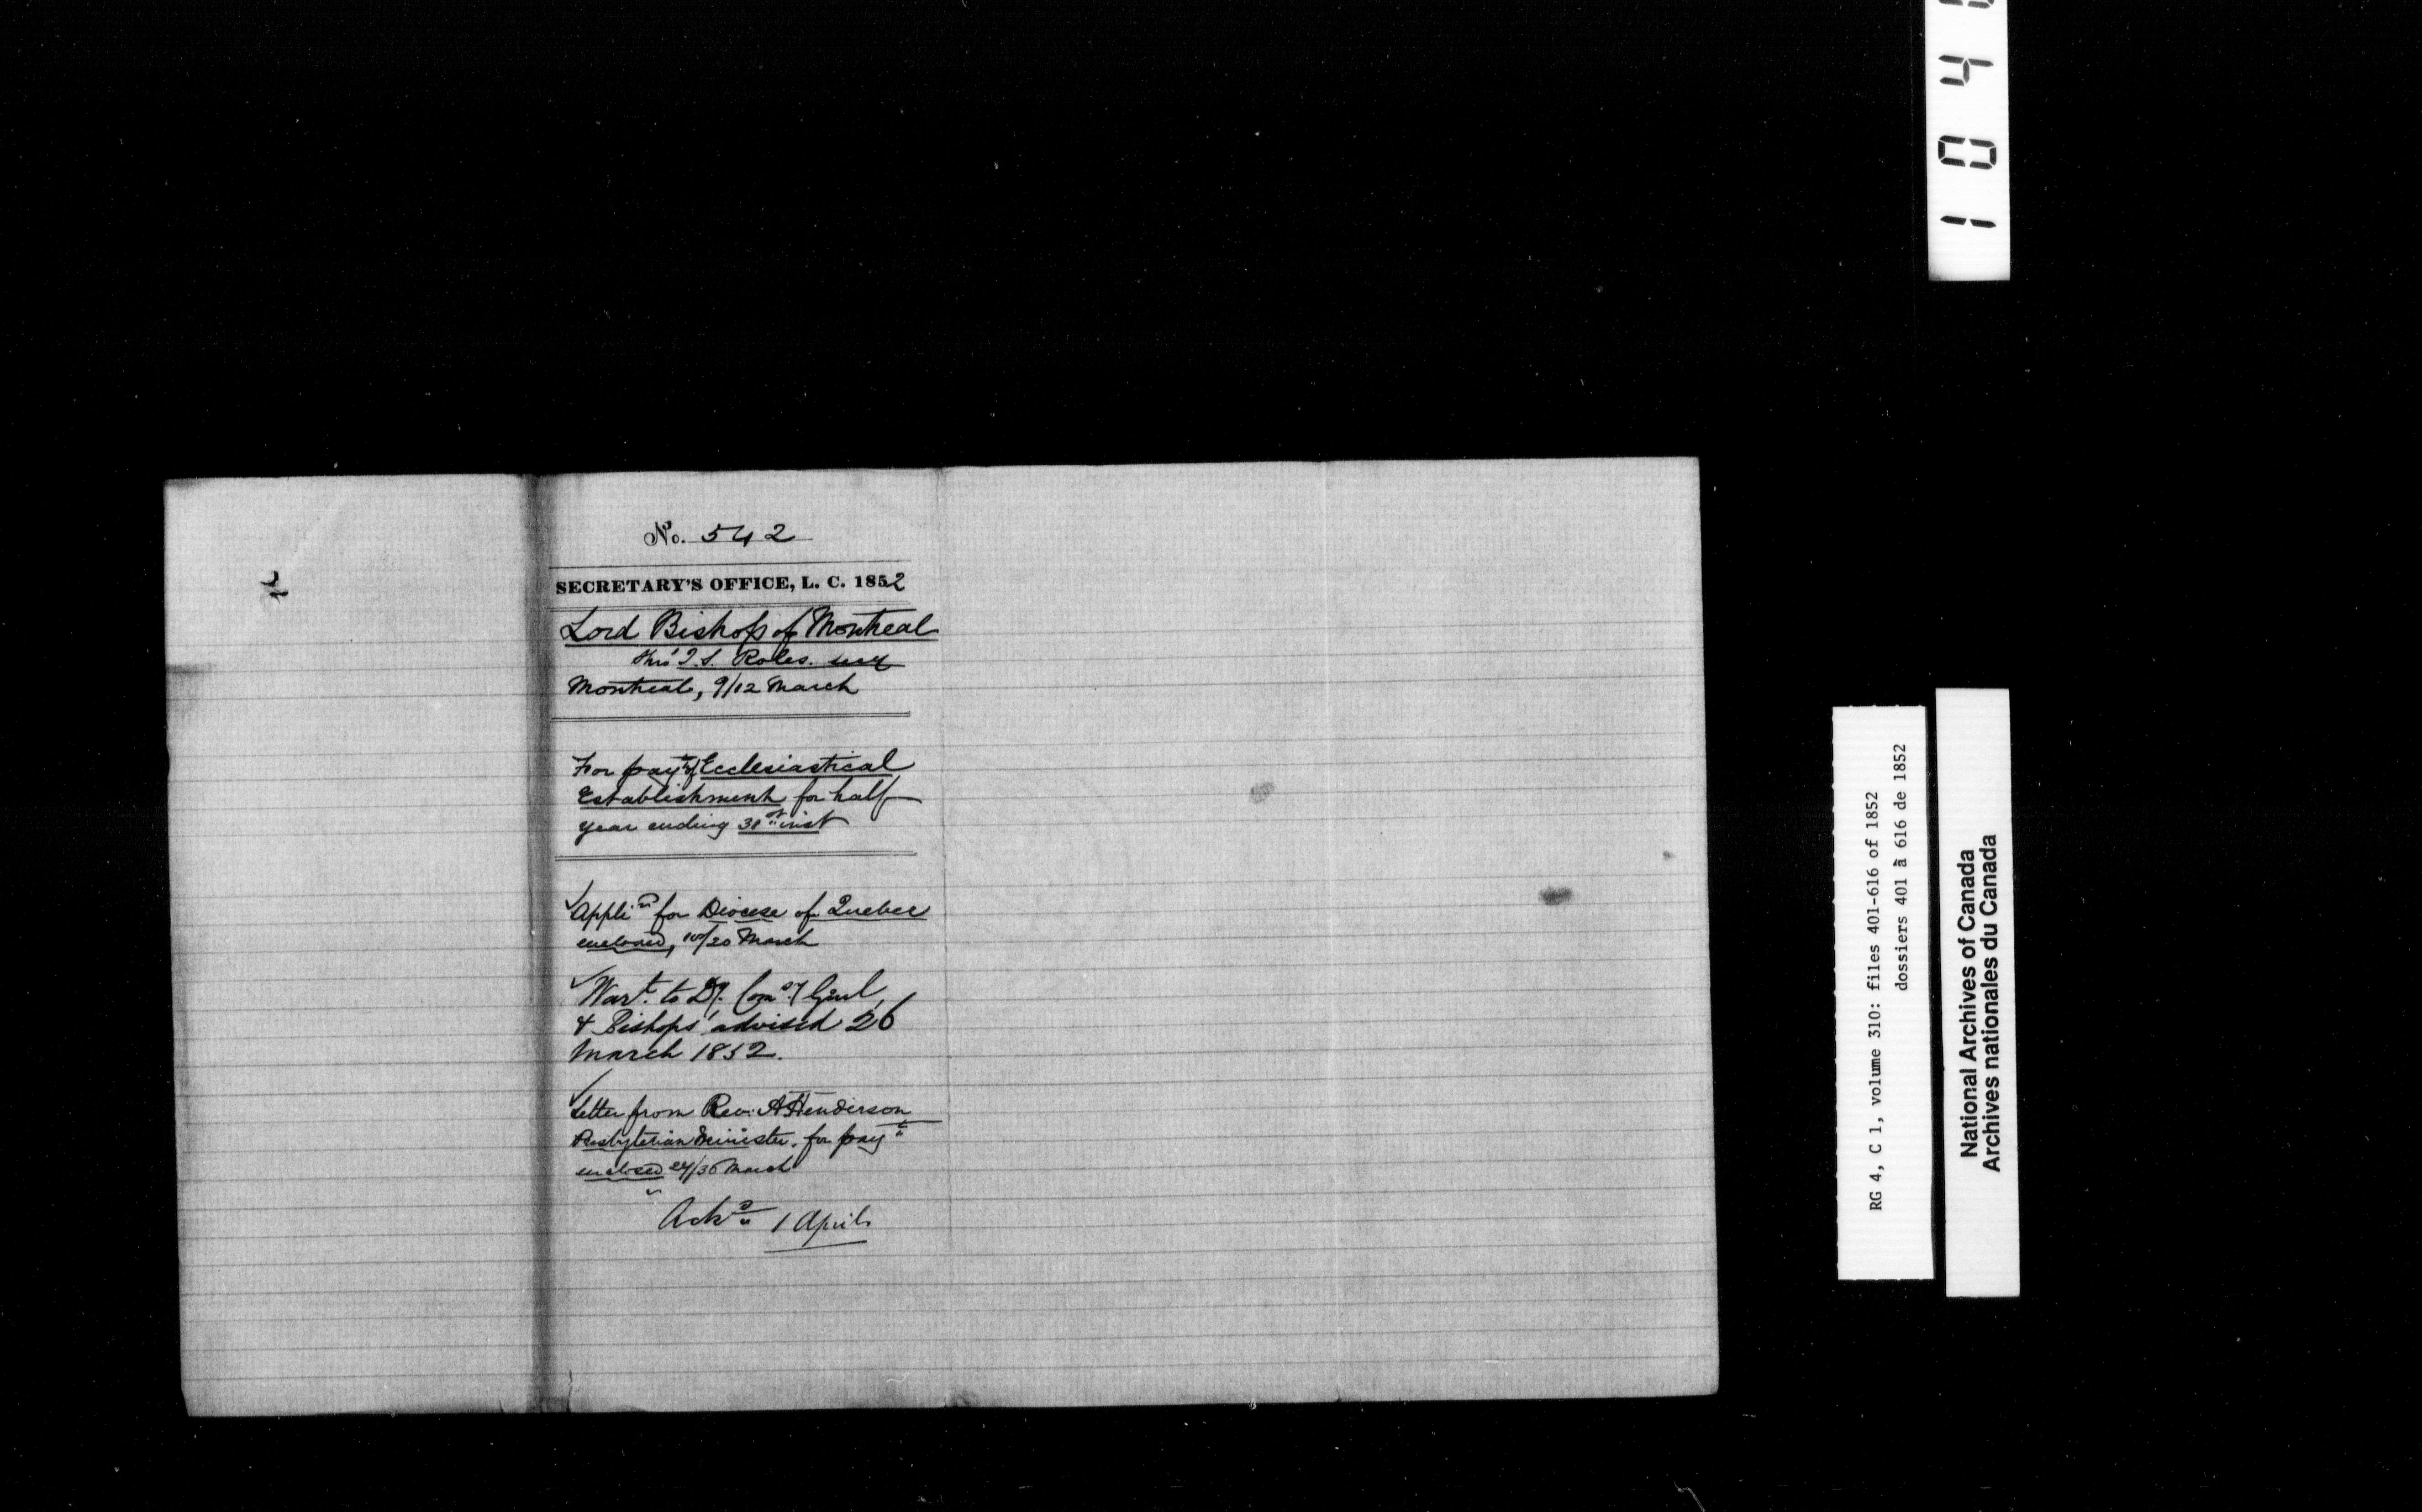 No. 542
SECRETARY'S OFFICE, L. C. 1852
Lord Bishop of Montreal
thro' Roles.
Montreal, 9/12 March
For payt of Ecclesiastical
Establishment for half
year ending 31st inst
Applin for Diocese of Quebec
enclosed, /20 March
Wart. to Dy. Comy Genl
& Bishops' advised 26
March 1852.
Letter from Rev. A Henderson
Presbyterian Minister, for payt
enclosed 24/30 March
Ackd 1 April
1 0 4
RG 4, C 1, volume 310: files 401-616 of 1852
dossiers 401 à 616 de 1852
National Archives of Canada
Archives nationales du Canada